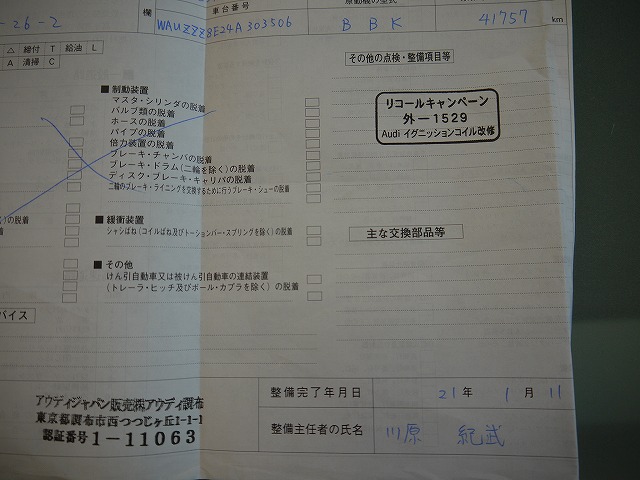 -26-2
欄
車台番号
WAUZZZ8E24A303506
原動機の型式
BBK
41757 km
△ 締付 T 給油 L
A 清掃 C
■ 制動装置
マスタ・シリンダの脱着
バルブ類の脱着
ホースの脱着
パイプの脱着
倍力装置の脱着
ブレーキ・チャンバの脱着
ブレーキ・ドラム(二輪を除く)の脱着
ディスク・ブレーキ・キャリパの脱着
二輪のブレーキ・ライニングを交換するために行うブレーキ・シューの脱着
く)の脱着
■ 緩衝装置
シャシばね(コイルばね及びトーションバー・スプリングを除く)の脱着
■ その他
けん引自動車又は被けん引自動車の連結装置
(トレーラ・ヒッチ及びボール・カプラを除く)の脱着
バイス
その他の点検・整備項目等
リコールキャンペーン
外-1529
Audi イグニッションコイル改修
主な交換部品等
アウディジャパン販売㈱アウディ調布
東京都調布市西つつじヶ丘1-1-1
認証番号1-11063
整備完了年月日
21年 1月 11
整備主任者の氏名
川原 紀武